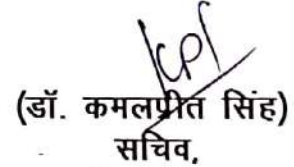 (डॉ. कमलप्रीत सिंह)
सचिव,